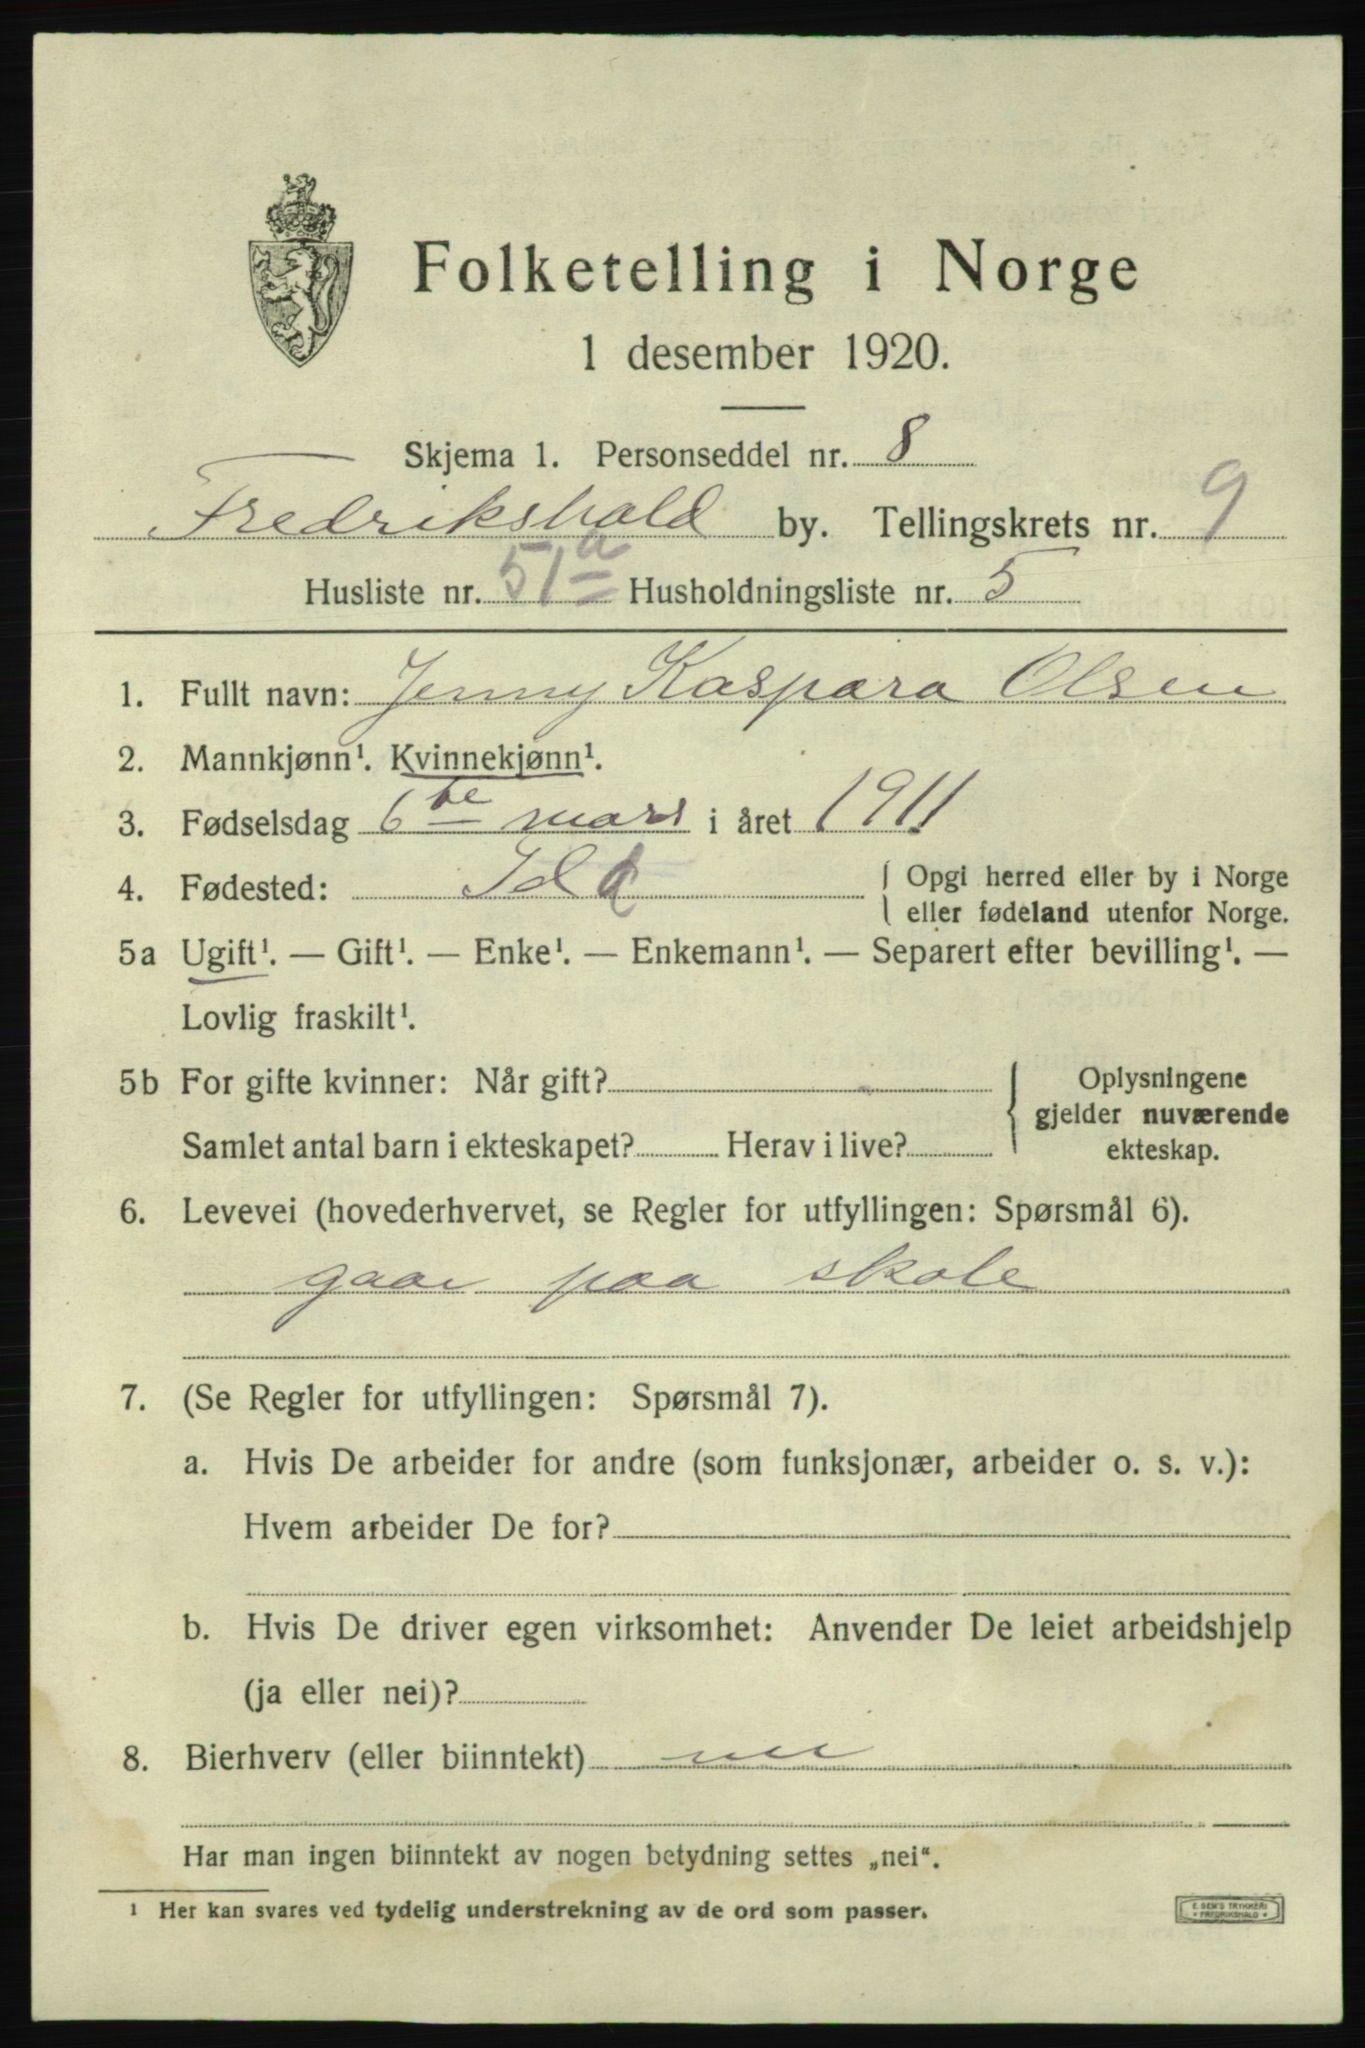 Folketelling i Norge
1 desember 1920.
Skjema 1. Personseddel nr. 8
Fredrikshald by. Tellingskrets nr. 9
Husliste nr. 51a Husholdningsliste nr. 5
1. Fullt navn: Jenny Kaspara Olsen
2. Mannkjønn¹. Kvinnekjønn¹.
3. Fødselsdag 6te mars i året 1911
4. Fødested: Idd { Opgi herred eller by i Norge
eller fødeland utenfor Norge.
5a Ugift¹. — Gift¹. — Enke¹. — Enkemann¹. — Separert efter bevilling¹. —
Lovlig fraskilt¹.
5b For gifte kvinner: Når gift? } Oplysningene
gjelder nuværende
Samlet antal barn i ekteskapet? Herav i live? ekteskap.
6. Levevei (hovederhvervet, se Regler for utfyllingen: Spørsmål 6).
gaar paa skole
7. (Se Regler for utfyllingen: Spørsmål 7).
a. Hvis De arbeider for andre (som funksjonær, arbeider o. s. v.):
Hvem arbeider De for?
b. Hvis De driver egen virksomhet: Anvender De leiet arbeidshjelp
(ja eller nei)?
8. Bierhverv (eller biinntekt) nei
Har man ingen biinntekt av nogen betydning settes „nei“.
¹ Her kan svares ved tydelig understrekning av de ord som passer.
E. SEM'S TRYKKERI
* FREDRIKSHALD *